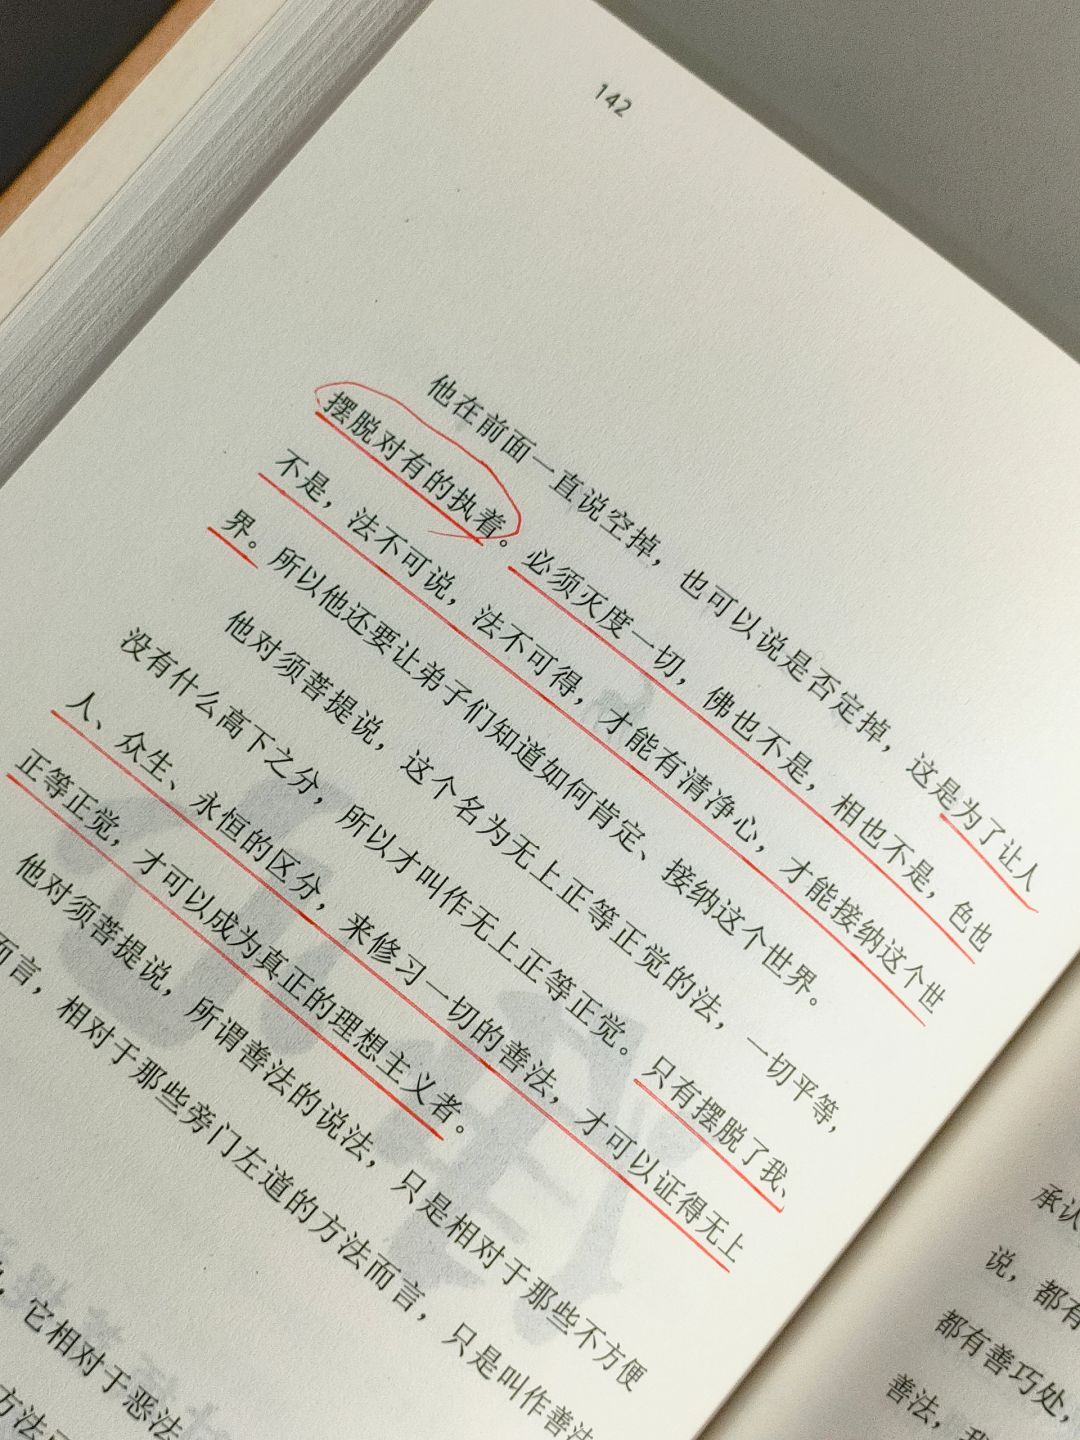 142
他在前面一直说空掉，也可以说是否定掉，这是为了让人
摆脱对有的执着。必须灭度一切，佛也不是，相也不是，色也
不是，法不可说，法不可得，才能有清净心，才能接纳这个世
界。所以他还要让弟子们知道如何肯定、接纳这个世界。
他对须菩提说，这个名为无上正等正觉的法，一切平等，
没有什么高下之分，所以才叫作无上正等正觉。只有摆脱了我、
人、众生、永恒的区分，来修习一切的善法，才可以证得无上
正等正觉，才可以成为真正的理想主义者。
他对须菩提说，所谓善法的说法，只是相对于那些不方便
而言，相对于那些旁门左道的方法而言，只是叫作善法
，它相对于恶法
方法
承认
说，都有
都有善巧处，
善法，我